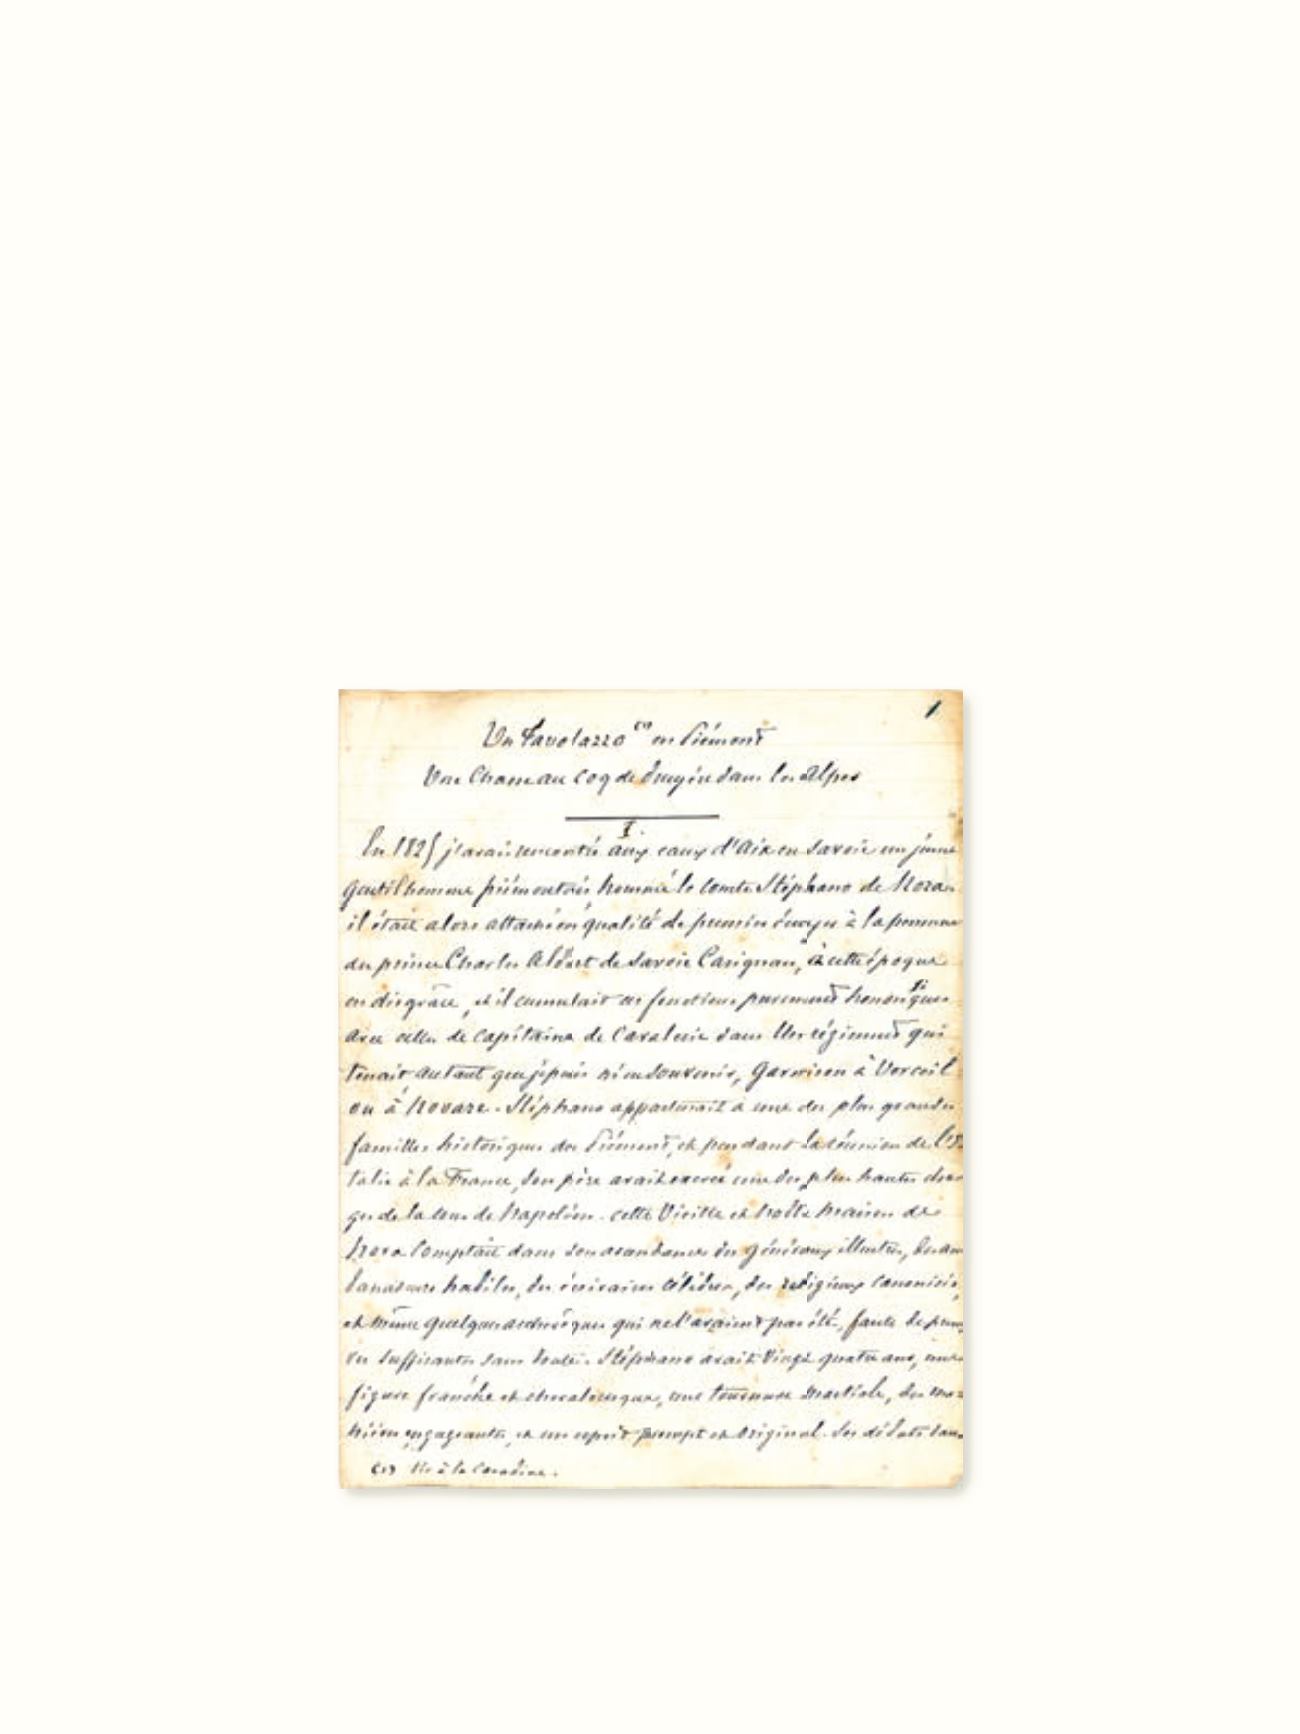 1
Un Tavolazzo (1) en Piémont
Une Chasse au coq de bruyère dans les Alpes
I.
En 1825 j'avais rencontré aux eaux d'Aix en Savoie un jeune
gentilhomme piémontais, nommé le comte Stéphano de Nora
il était alors attaché en qualité de premier écuyer à la personne
du prince Charles Albert de Savoie Carignan, à cette époque
en disgrâce, et il cumulait ces fonctions purement honorifiques
avec celles de capitaine de cavalerie dans un régiment qui
tenait autant que je puis m'en souvenir, garnison à Verceil
ou à Novare. Stéphano appartenait à une des plus grandes
familles historiques du Piémont, et pendant la réunion de l'I
talie à la France, son père avait exercé une des plus hautes char
ges de la cour de Napoléon. cette Vieille et noble maison de
Nora comptait dans son ascendance des généraux illustres, des am
bassadeurs habiles, des écrivains célèbres, des religieux canonisés,
et même quelques archevêques qui ne l'avaient pas été, faute de preu
ves suffisantes sans doute. Stéphano avait vingt quatre ans, une
figure franche et chevaleresque, une tournure martiale, des ma
nières engageantes, et un esprit prompt et original. Ses débuts dans
(1) Tir à la Carabine.